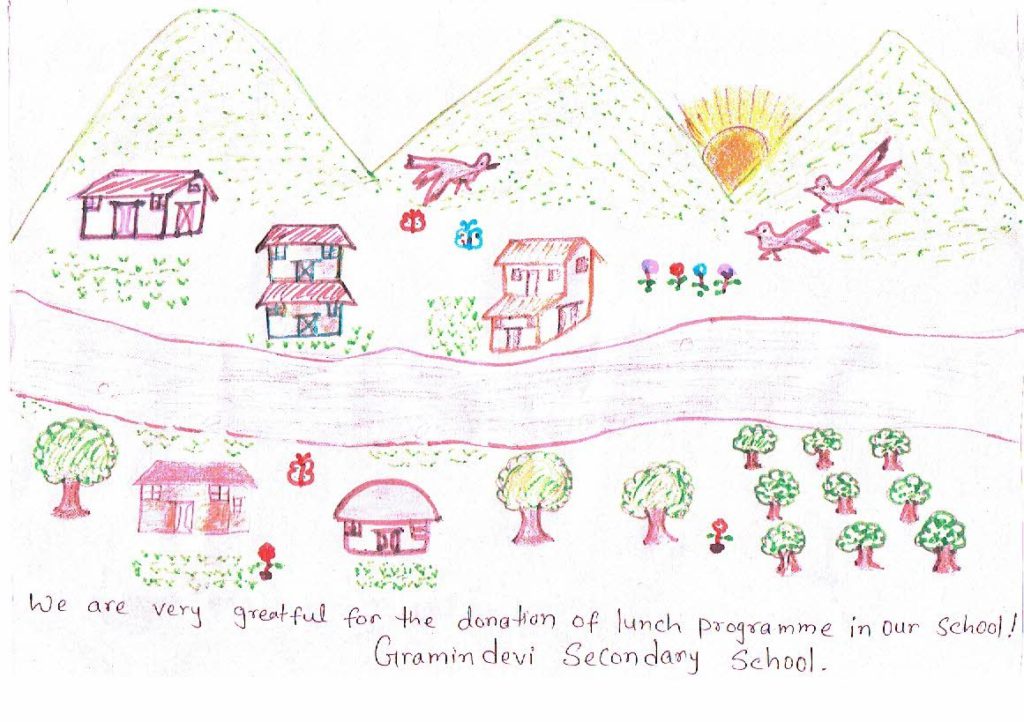 We are very greatful for the donation of lunch programme in our school!
Gramin devi Secondary School.